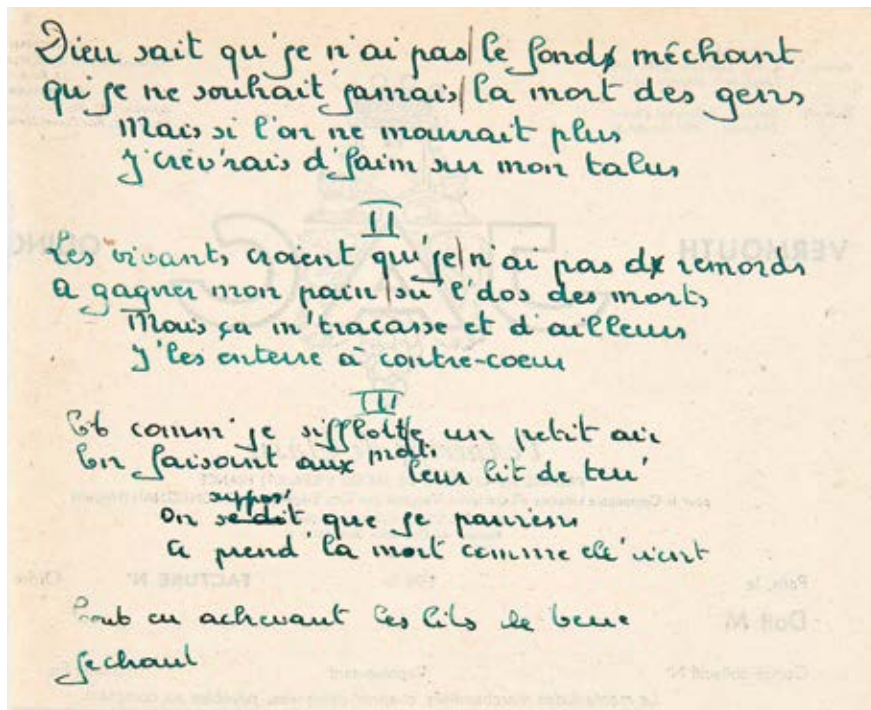 Dieu sait qu'je n'ai pas/le fonds méchant
qu'je ne souhait' jamais/la mort des gens
Mais si l'on ne mourrait plus
J'crèv'rais d'faim sur mon talus
II
VERMOUTH
Les vivants croient qu'je/n'ai pas d' remords
A gagner mon pain/su' l'dos des morts
Mais ça m'tracasse et d'ailleurs
J'les enterre à contre-coeur
III
Et comm' je sifflotte un petit air
En faisant aux morts leur lit de terr'
suppos'
On se dit que je parviens
A prend' la mort comme ell' vient
Paris, le FACTURE N°
en achevant les lits de terre
Doit M
je chant